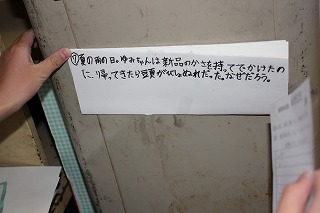 ⑦夏の雨の日。ゆみちゃんは新品のかさを持ってでかけたの
に、帰ってきたら頭がびしょぬれだった。なぜだろう。